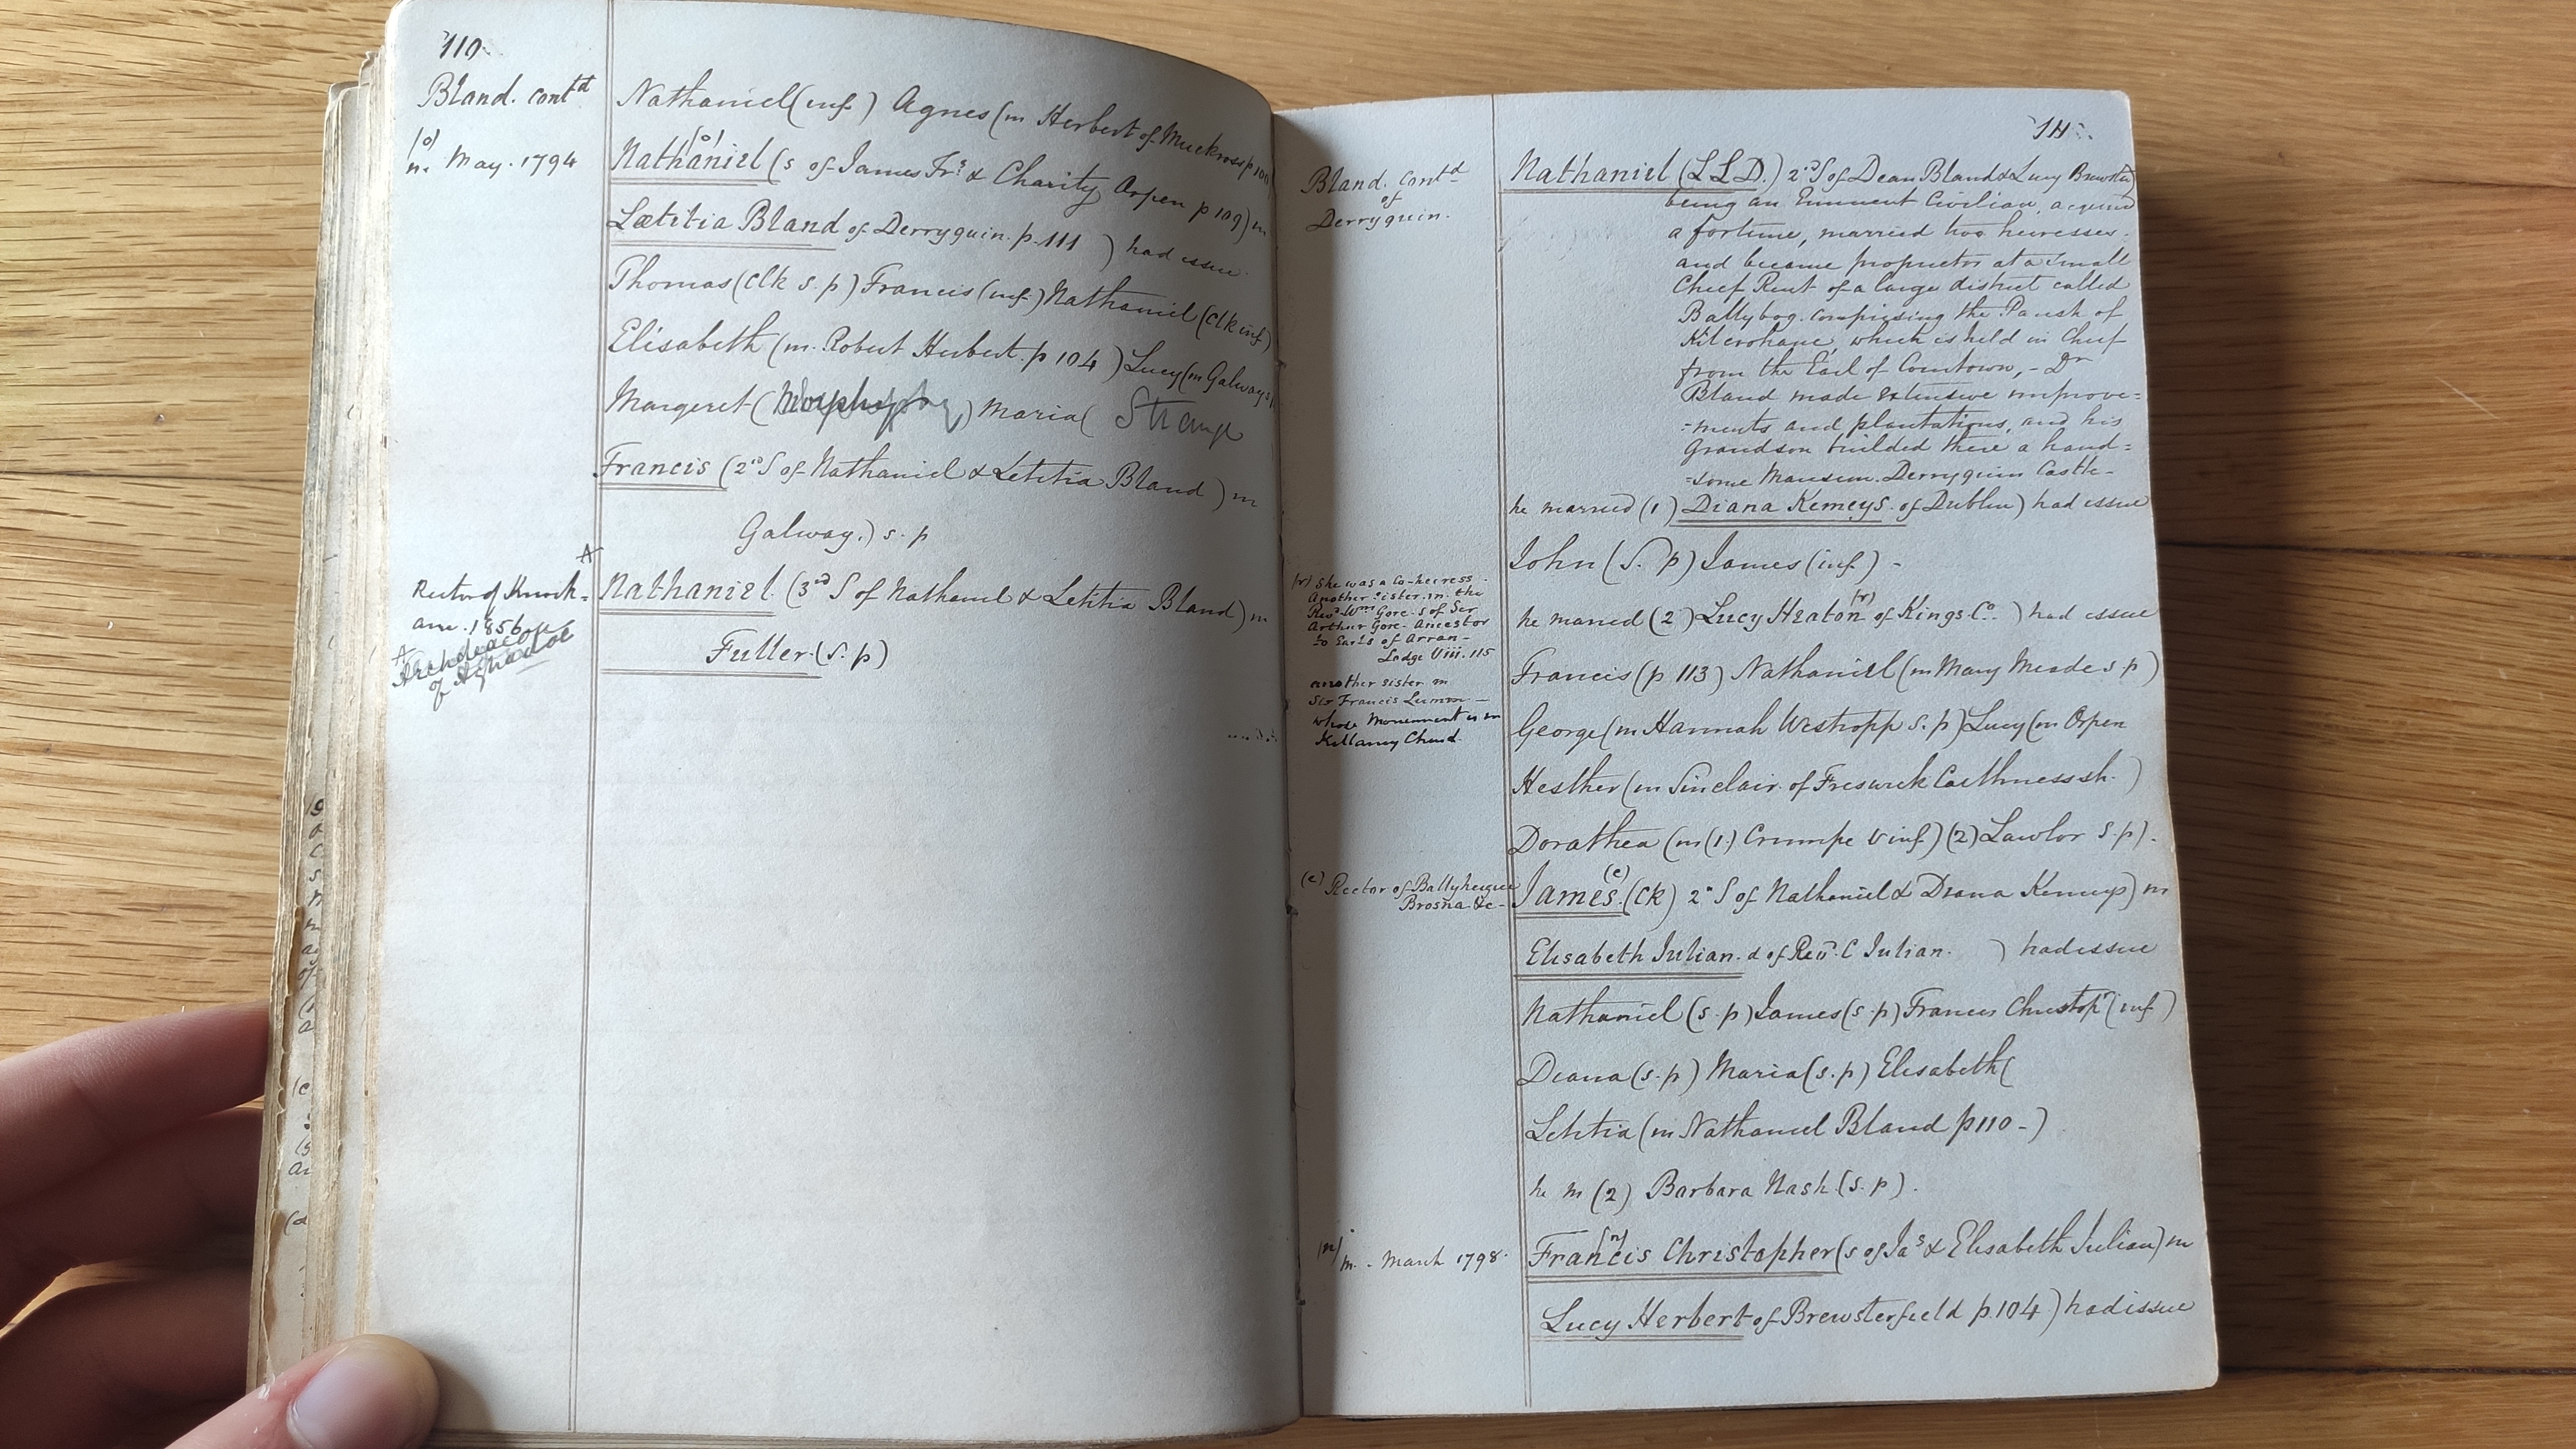 110.
Bland. contd
(o)
m. May. 1794
Nathaniel (inf.) Agnes (m Herbert of Muckross p 100
(o)
Nathaniel (s of James Frs & Charity Orpen p 109) m
Lætitia Bland of Derryquin. p. 111 ) had issue.
Thomas (Clk s. p) Francis (inf.) Nathaniel (Clk inf)
Elisabeth (m. Robert Herbert. p 104 ) Lucy (m Galways
Margeret ( ) Maria (
Francis (2nd S of Nathaniel & Letitia Bland ) m
Galway.) s. p
A
Rector of Knock=
ane. 1856
A
Archdeacon
of Aghadoe
Nathaniel. (3rd S of Nathaniel & Letitia Bland) m
Fuller. (s. p)
111.
Bland. Contd
of
Derryquin.
Nathaniel (L L D.) 2nd S of Dean Bland & Lucy Brewster)
being an Eminent Civilian, acquired
a fortune, married two heiresses.
and became proprietor at a small
Chief Rent of a large district called
Ballybog. comprising the Parish of
Kilcrohane, which is held in Chief
from the Earl of Courtown, - Dr
Bland made extensive improve=
=ments and plantations, and his
Grandson builded there a hand=
=some Mansion. Derryquin Castle-
he married (1) Diana Kemeys. of Dublin) had issue
John (S. p) James (inf.) -
(r) She was a Co-heiress.
Another sister. m. the
Revd. Wm Gore. S of Ser
Arthur Gore. Ancestor
to Earls of Arran -
Lodge Viii. 115
another sister m
Sir Francis Lumm -
whose Monument is in
Killarney Church.
(r)
he married (2) Lucy Heaton of Kings. Co. ) had issue
Francis (p 113) Nathaniel (m Mary Meade s p)
George (m Hannah Westropp s. p) Lucy (m Orpen
Hesther (m Sinclair. of Freswick Caithness sh. )
Dorathea (m (1.) Crumpe v inf) (2) Lawlor s. p).
(e) Rector of Ballyheigue
Brosna &c-
(e)
James. (Ck) 2d S of Nathaniel & Diana Kemeys) m
Elisabeth Julian. d of Revd. C Julian. ) had issue
Nathaniel (s. p) James (s. p) Francis Christopr (inf )
Diana (s. p) Maria (s. p) Elisabeth (
Letitia (m Nathaniel Bland p 110-)
he m (2) Barbara Nash (s. p).
(n)
m. - March 1798.
(n)
Francis Christopher (s of Jas & Elisabeth Julian) m
Lucy Herbert of Brewsterfield p. 104 ) had issue